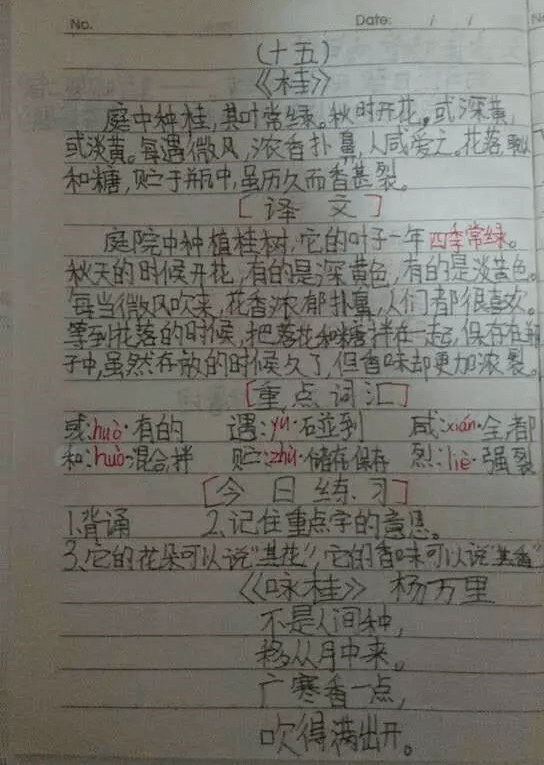 No.
Date: / /
(十五)
《桂》
庭中种桂,其叶常绿。秋时开花,或深黄,
或淡黄。每遇微风,浓香扑鼻,人咸爱之。花落,取以
和糖,贮于瓶中,虽历久而香甚裂。
[译文]
庭院中种植桂树,它的叶子一年四季常绿。
秋天的时候开花,有的是深黄色,有的是淡黄色。
每当微风吹来,花香浓郁扑鼻,人们都很喜欢。
等到花落的时候,把落花和糖拌在一起,保存在瓶
子中,虽然存放的时候久了,但香味却更加浓裂。
[重点词汇]
或:huò·有的 遇:yù·碰到 咸:xián·全都
和:huò·混合拌 贮:zhù·储存保存 烈:liè·强裂
[今日练习]
1.背诵 2.记住重点字的意思。
3.它的花朵可以说“其花”,它的香味可以说“其香”
《咏桂》 杨万里
不是人间种,
移从月中来。
广寒香一点,
吹得满出开。